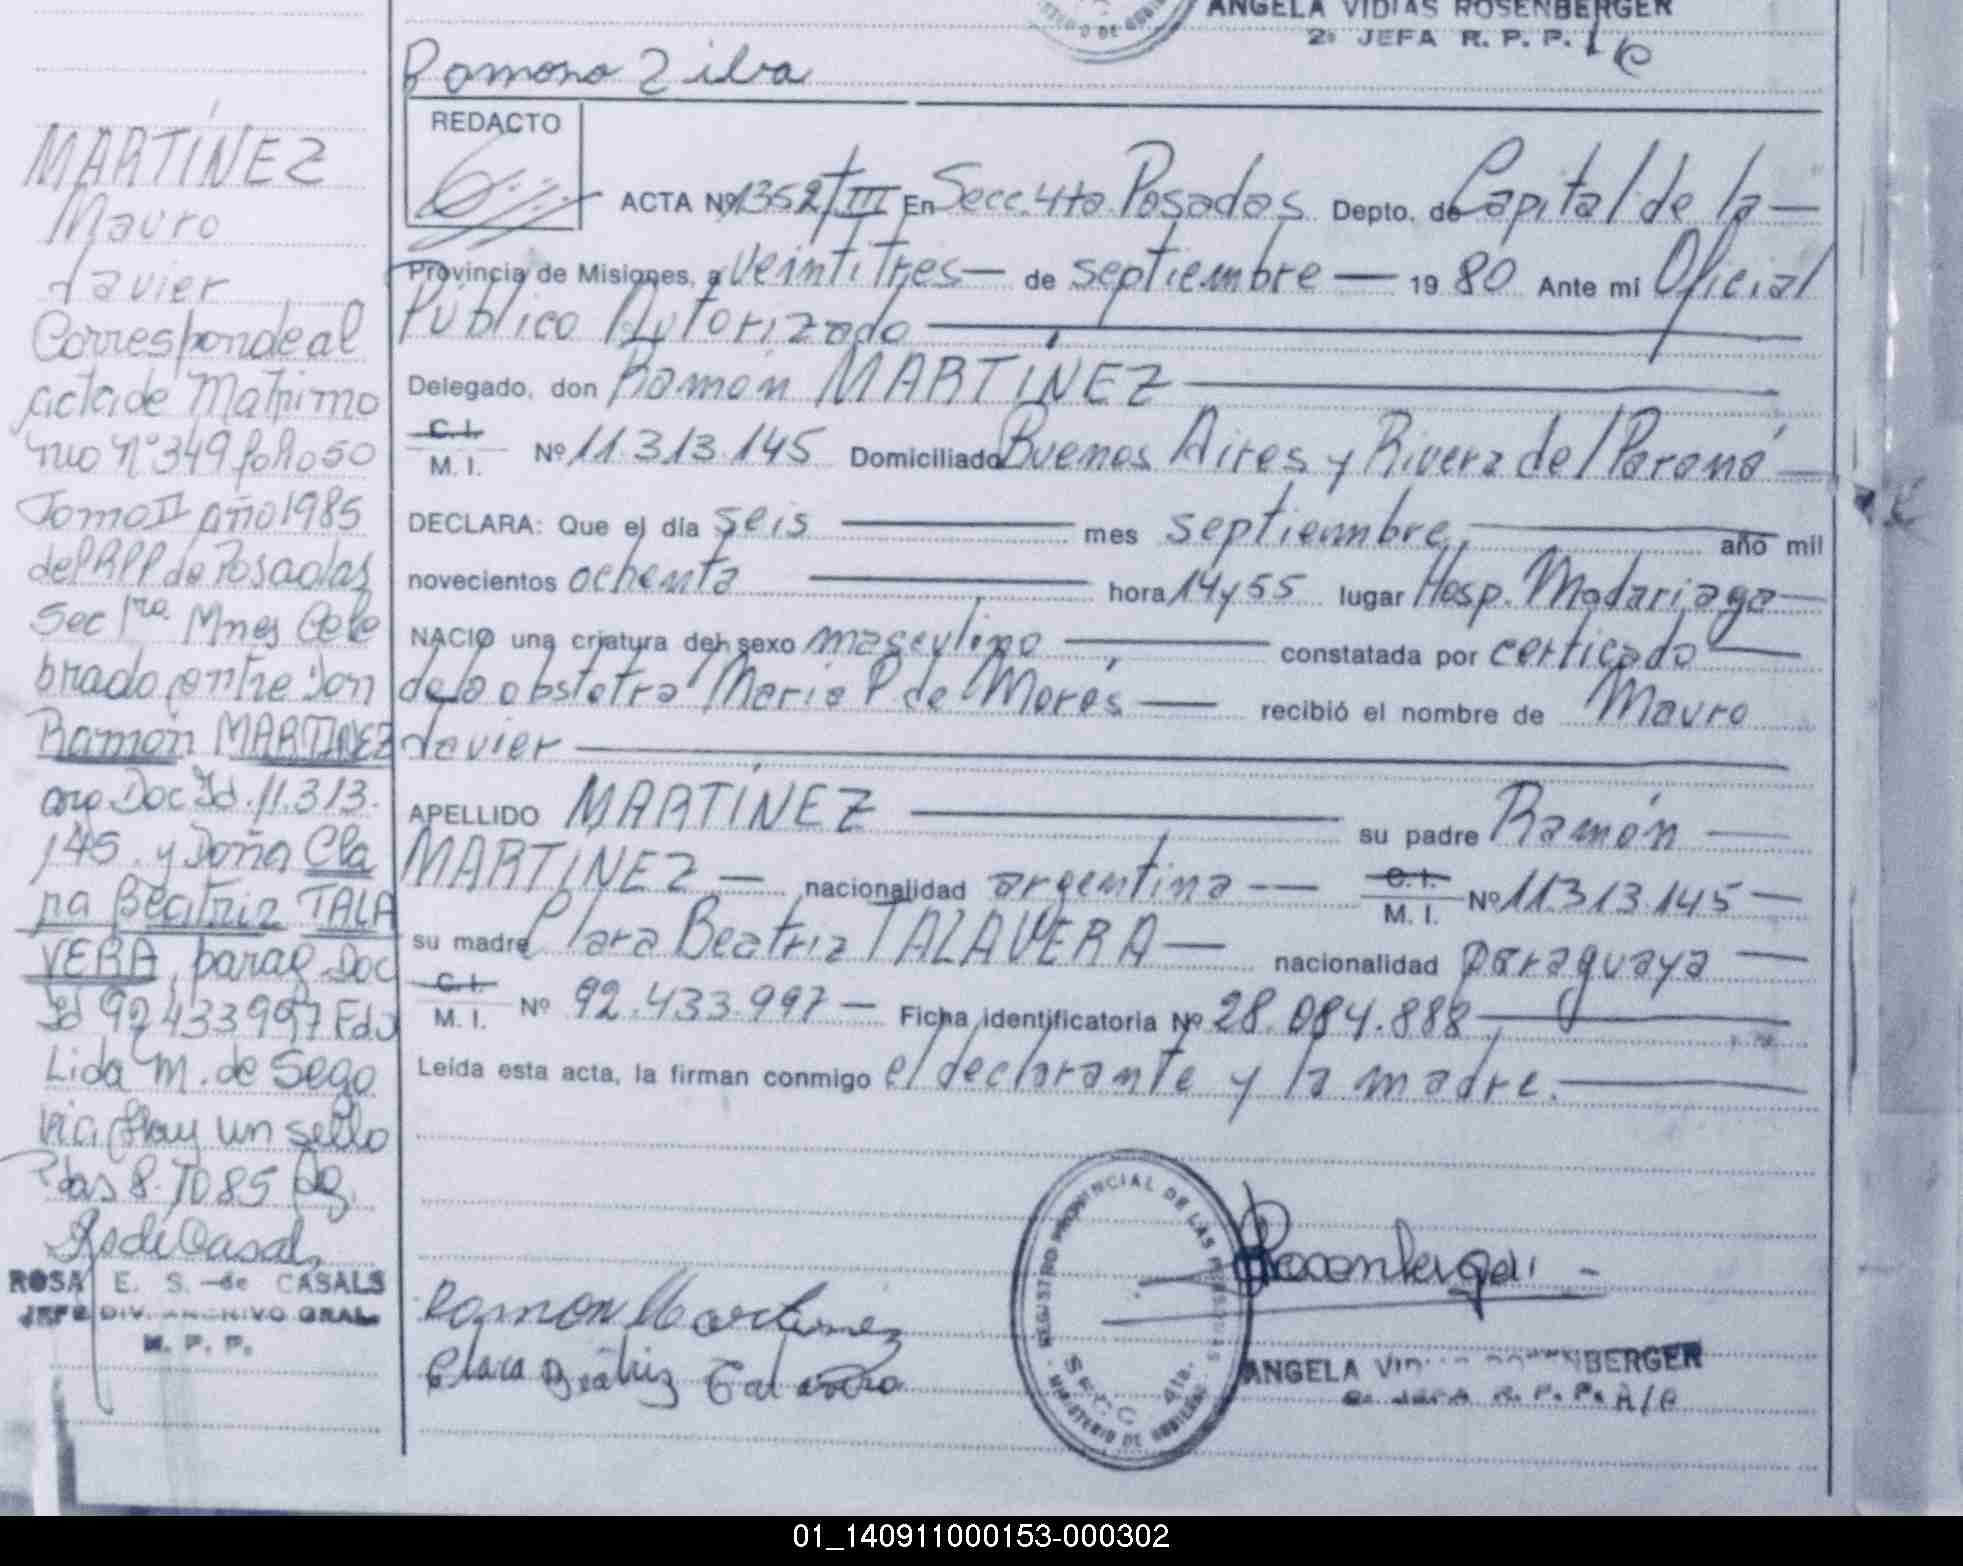 ANGELA VIDIAS ROSENBERGER
2ª JEFA R. P. P.
Ramona Zilva
MARTÍNEZ
Mauro
Javier
Corresponde al
acta de Matrimo
nio Nº 349 folio 50
Tomo II año 1985
del RPP de Posadas
Sec 1ra Mnes Cele
brado entre Don
Ramón MARTINEZ
arg Doc Id. 11.313.
145. y Doña Cla
ra Beatriz TALA
VERA, parag Doc
Id 92433997 Fdo
Lida M. de Sego
via Hay un sello
Pdas 8-10 85
ROSA E. S. de CASALS
JEFE DIV. ARCHIVO GRAL
R. P. P.
REDACTO
ACTA Nº 1352 TIII En Secc. 4ta Posadas Depto. de Capital de la
Provincia de Misiones, a veintitres de septiembre 19 80 Ante mi Oficial
Público Autorizado
Delegado, don Ramón MARTÍNEZ
C. I.
M. I. Nº 11.313.145 Domiciliado Buenos Aires y Rivera del Paraná
DECLARA: Que el día seis mes septiembre, año mil
novecientos ochenta hora 14 y 55 lugar Hosp. Madariaga
NACIO una criatura del sexo masculino constatada por certicado
de la obstetra María P. de Morés recibió el nombre de Mauro
Javier
APELLIDO MARTÍNEZ su padre Ramón
MARTINEZ nacionalidad argentina C. I.
M. I. Nº 11.313.145
su madre Clara Beatriz TALAVERA nacionalidad paraguaya
C. I.
M. I. Nº 92.433.997 Ficha identificatoria Nº 28.084.888
Leída esta acta, la firman conmigo el declarante y la madre.
REGISTRO PROVINCIAL DE LAS PERSONAS
Secc. 4ta.
MINISTERIO DE GOBIERNO
Rosenberger
Ramon Martinez
Clara Beatriz Talavera
ANGELA VIDIAS ROSENBERGER
2ª JEFA R. P. P. A/C
01_140911000153-000302